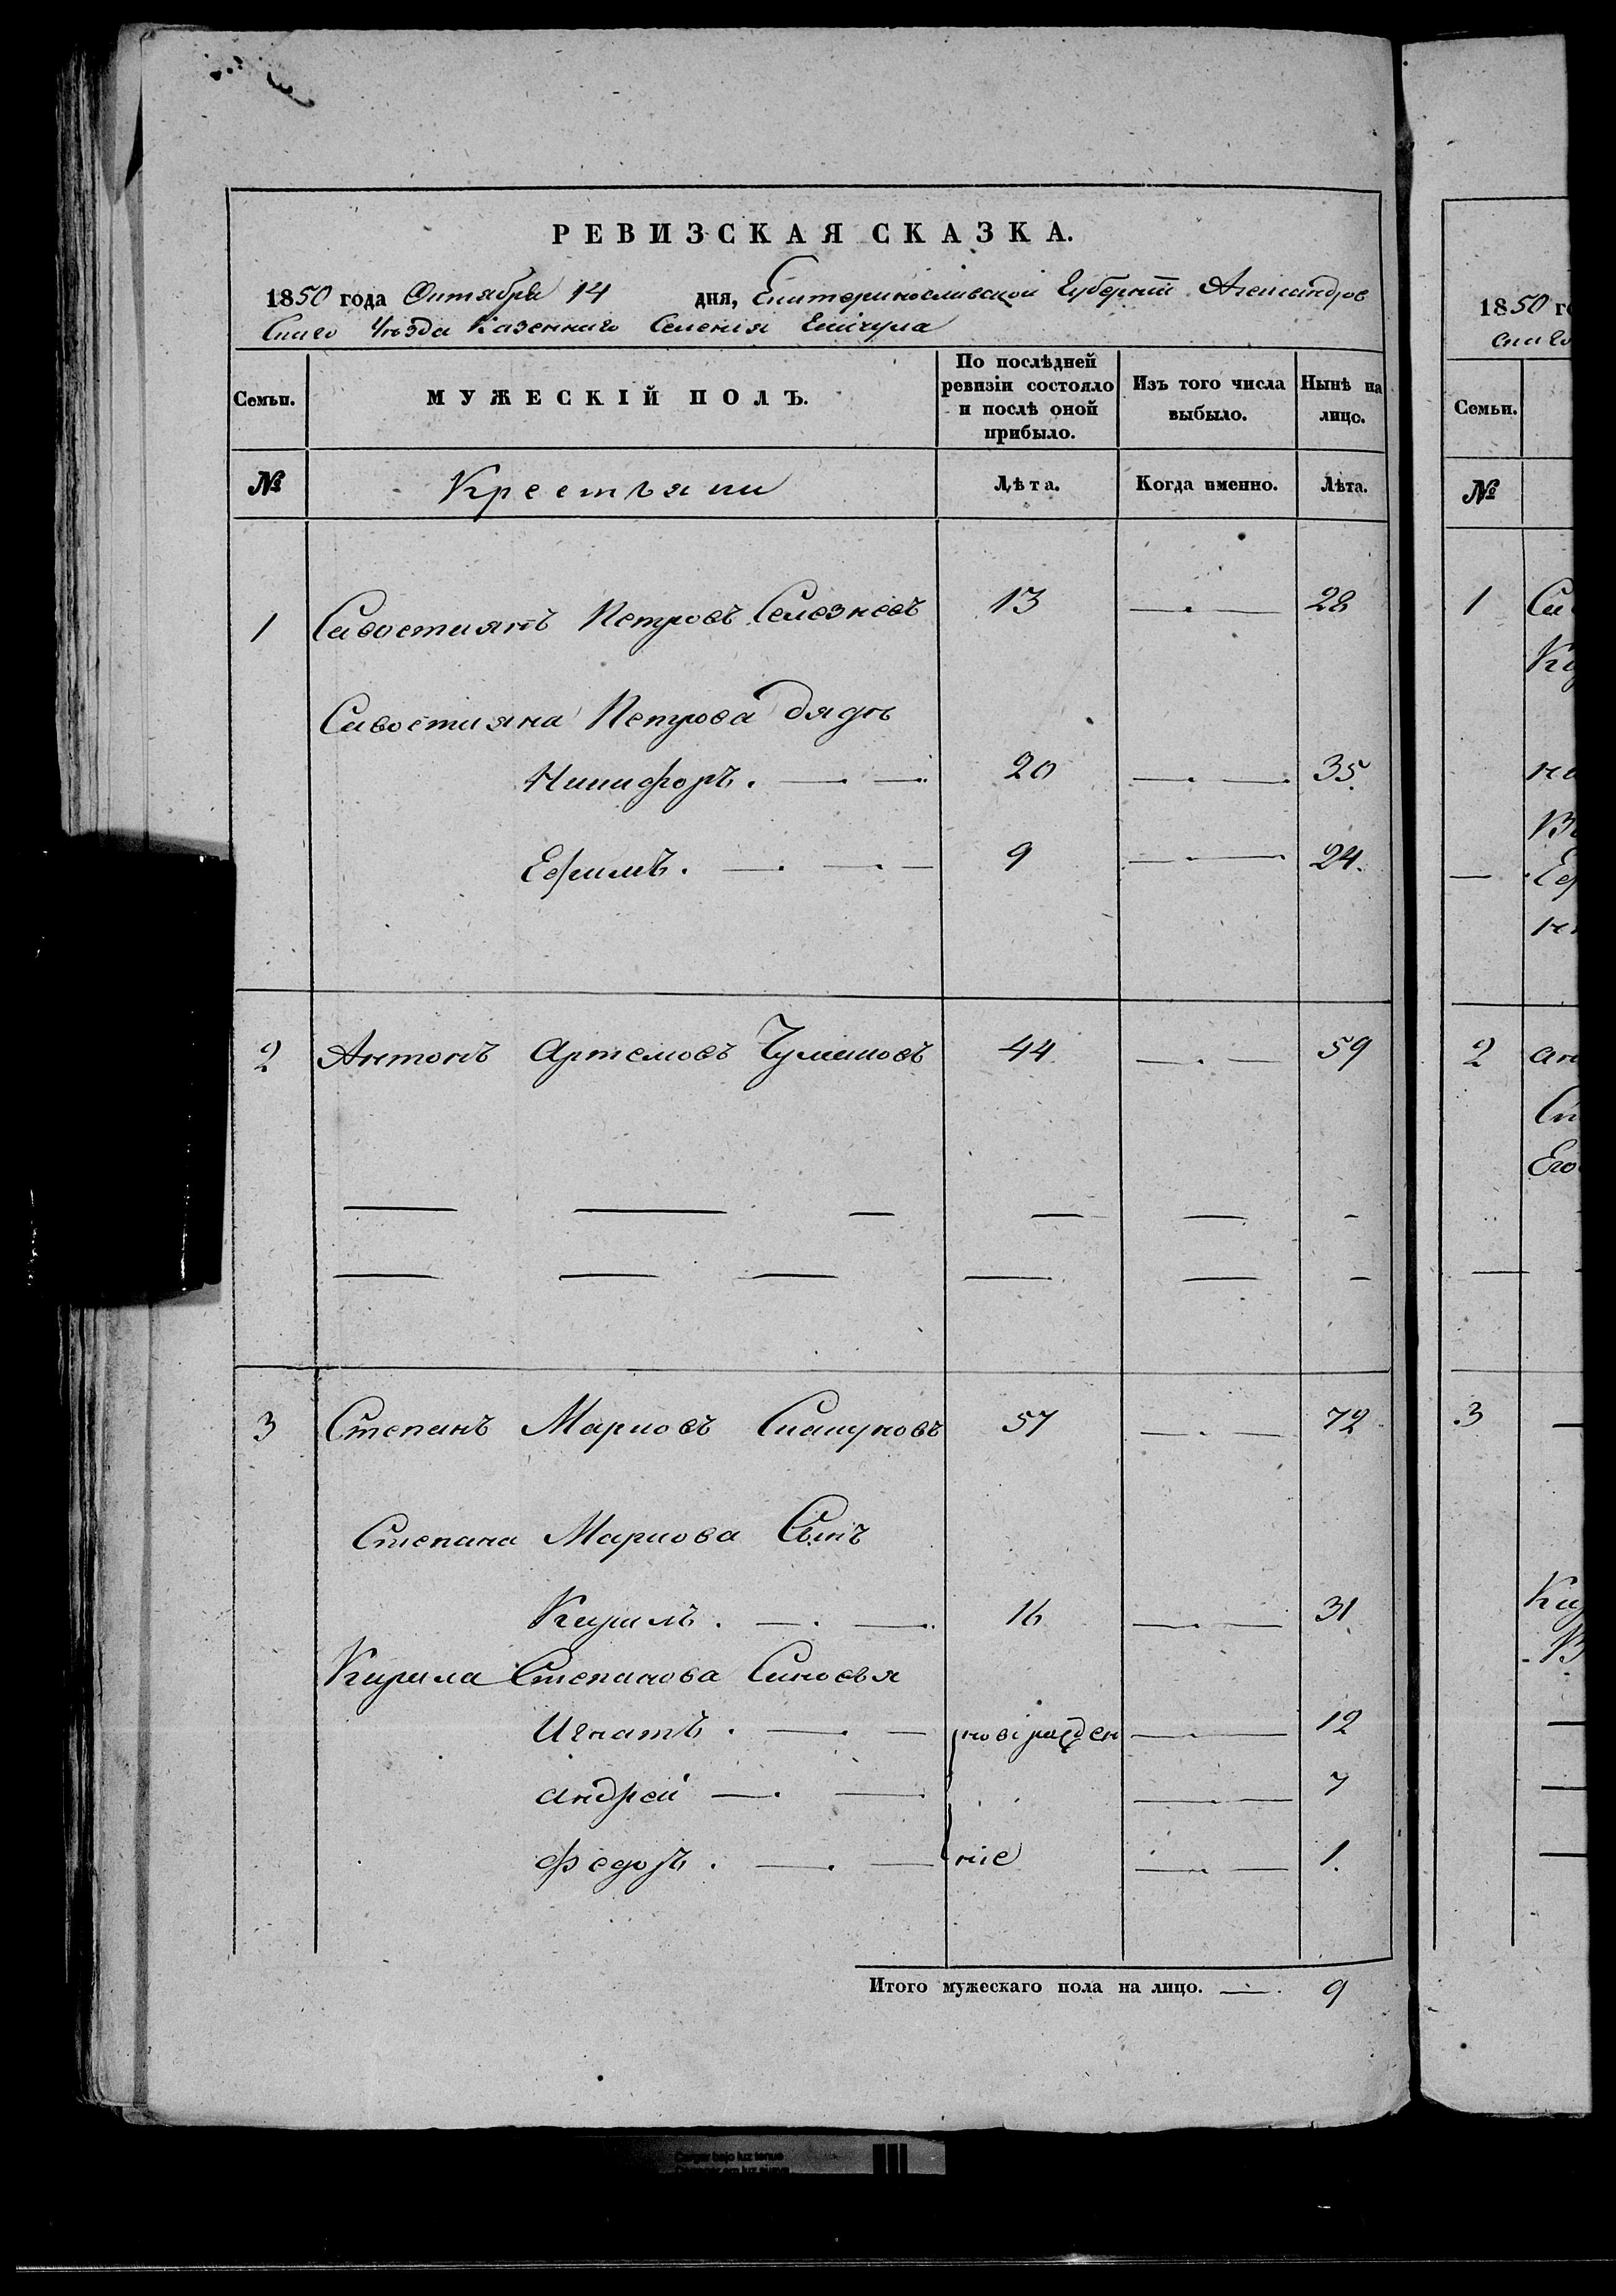 РЕВИЗСКАЯ СКАЗКА.
1850 года Октября 14 дня, Екатеринославской Губерніи Александров
скаго Уѣзда Казеннаго Селенія
Семьи. МУЖЕСКІЙ ПОЛЪ. По послѣдней ревизіи состояло и послѣ оной прибыло. Изъ того числа выбыло. Нынѣ на лицо.
№ Крестьяни Лѣта. Когда именно. Лѣта.
1 Савостиянъ Петровъ Селезневъ 13 28
Савостияна Петрова дядѣ
Никифоръ. 20 35.
Ефимъ. 9 24.
2 Антонъ Артемовъ 44 59
3 Степанъ Марковъ 57 72
Степана Маркова Сынъ
Кирилъ. 16 31
Кирила Степанова Синовья
Игнатъ. новірожден 12
Андрей 7
Федоръ. ніе 1.
Итого мужескаго пола на лицо. 9
1850 го
скаго
Семьи.
№
1
2
3